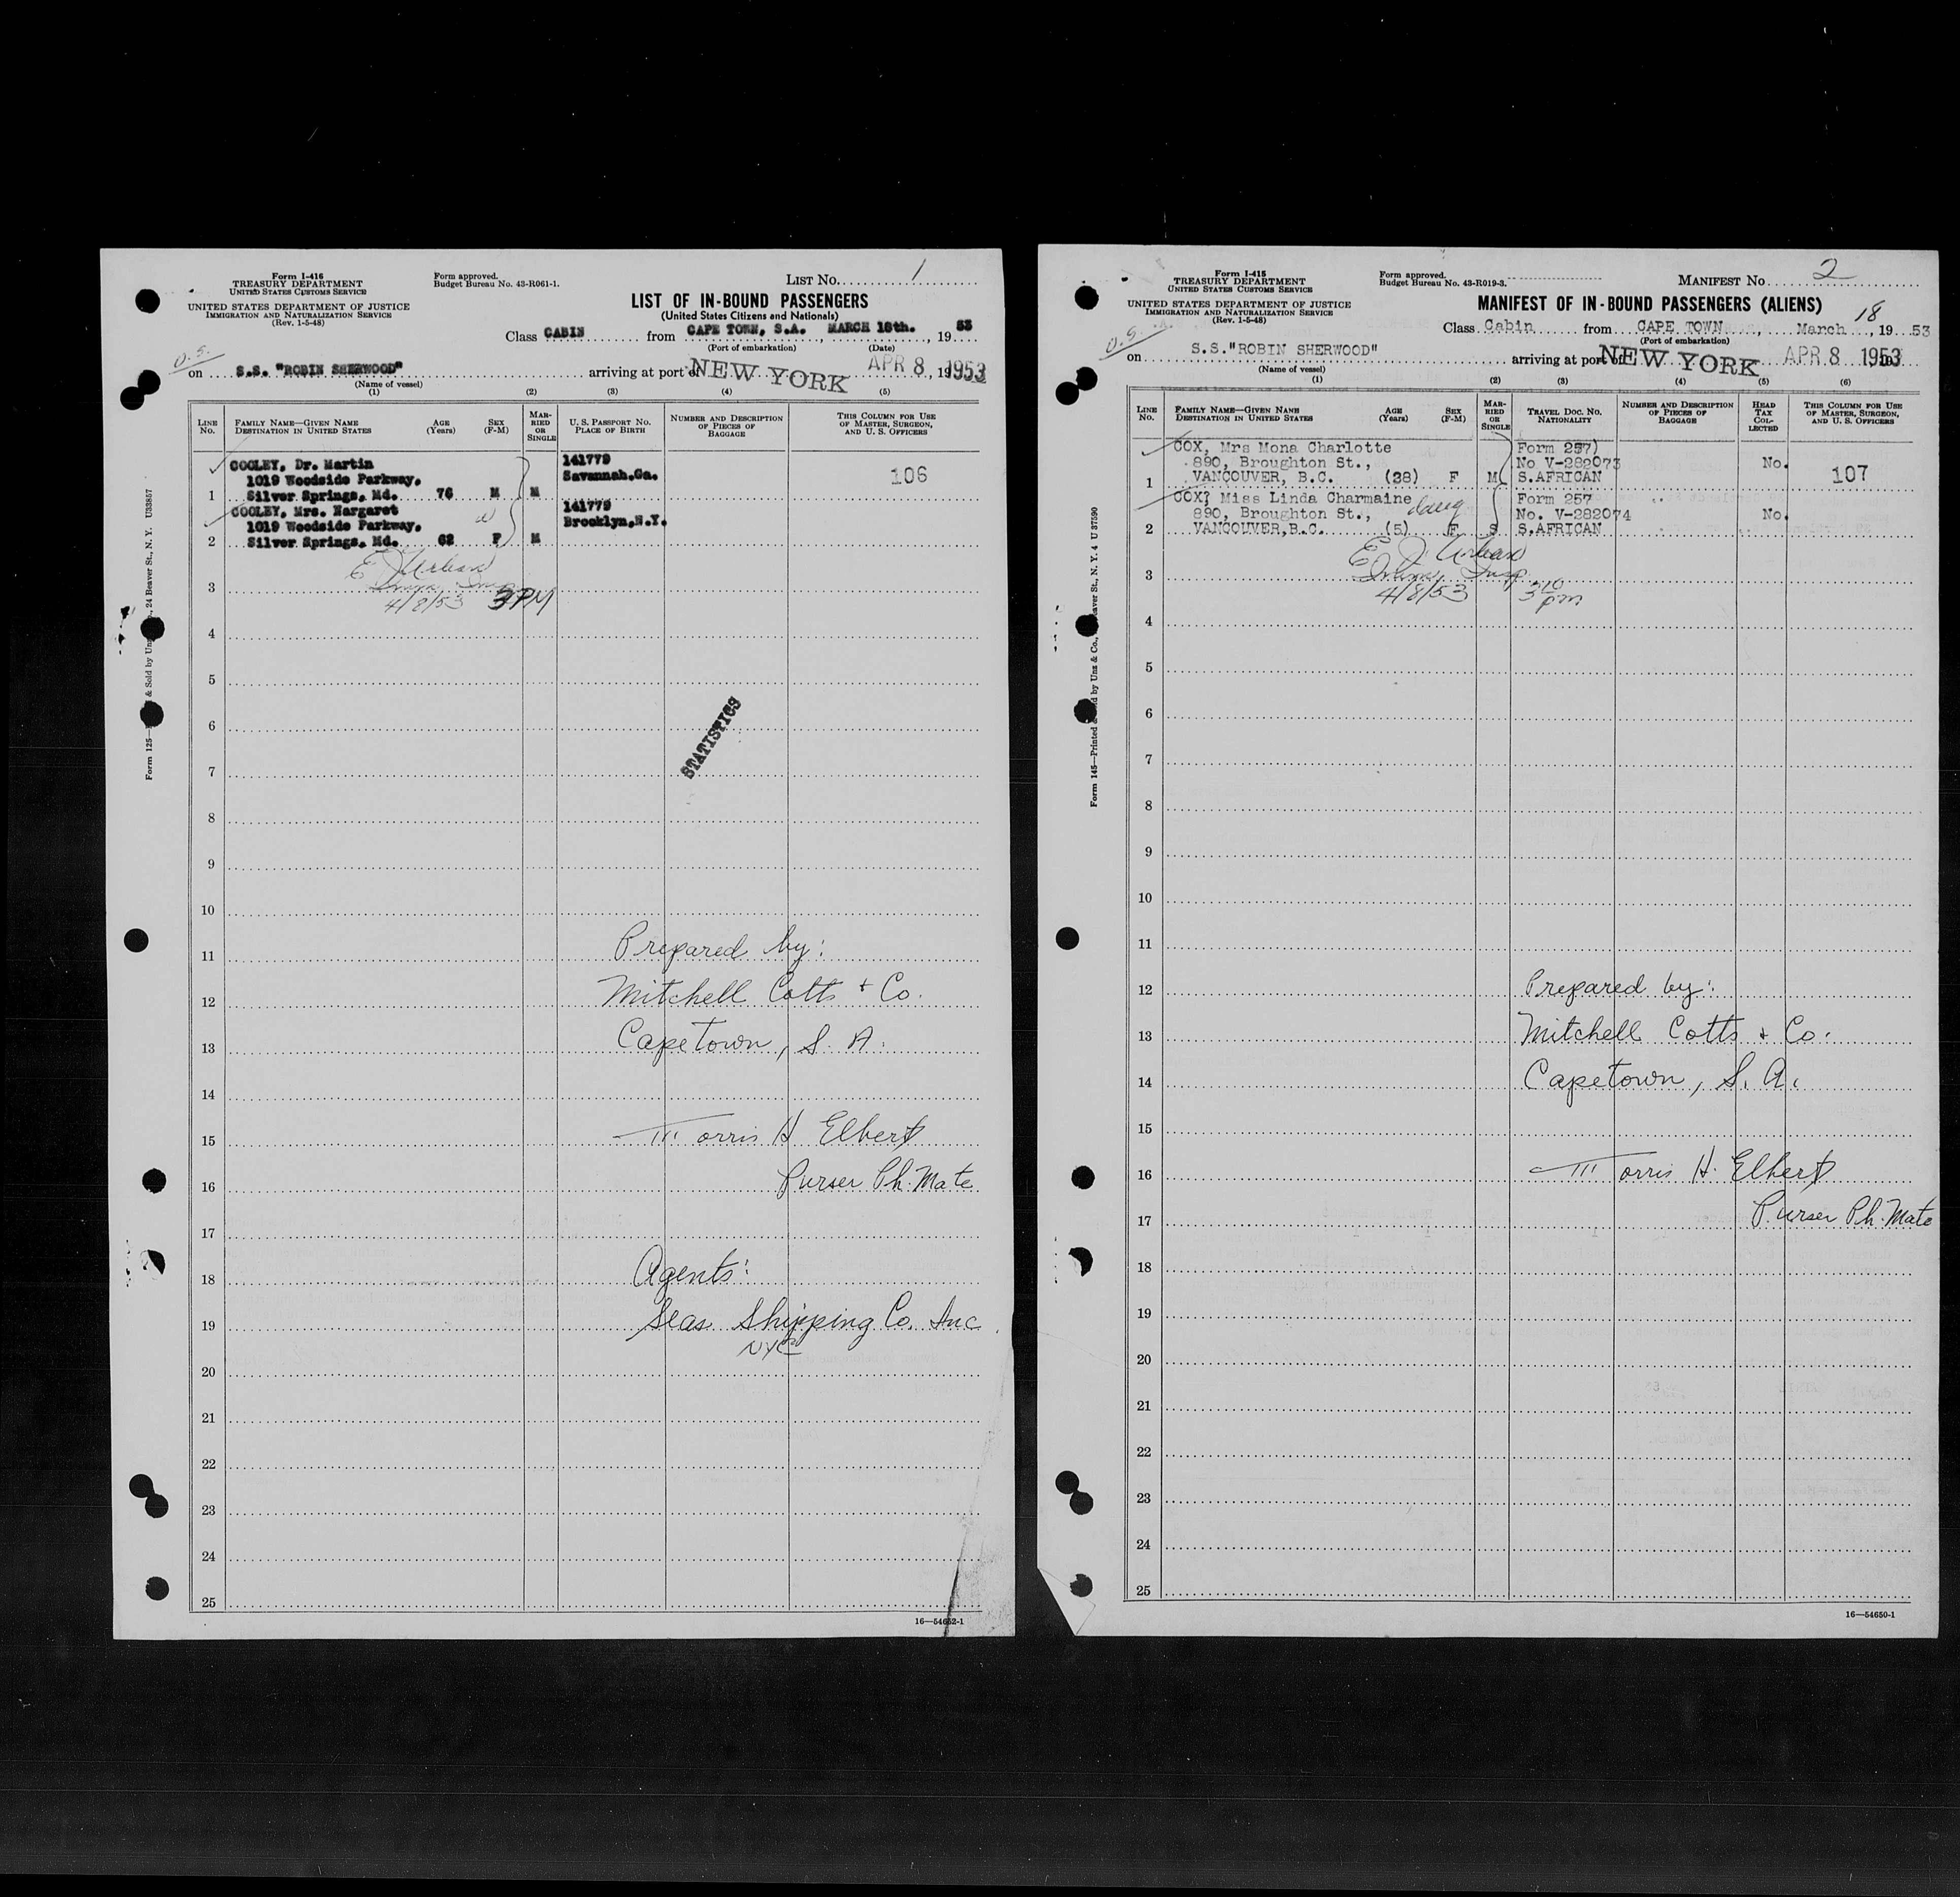 Form I-416
TREASURY DEPARTMENT
UNITED STATES CUSTOMS SERVICE
UNITED STATES DEPARTMENT OF JUSTICE
IMMIGRATION AND NATURALIZATION SERVICE
(Rev. 1-5-48)
Form approved.
Budget Bureau No. 43-R061-1.
LIST No. 1
LIST OF IN-BOUND PASSENGERS
(United States Citizens and Nationals)
Class CABIN from CAPE TOWN, S.A. MARCH 18th. , 19 53
(Port of embarkation) (Date)
on S.S. "ROBIN SHERWOOD" arriving at port of NEW YORK APR 8, 1953
(Name of vessel)
(1) (2) (3) (4) (5)
LINE No. FAMILY NAME—GIVEN NAME DESTINATION IN UNITED STATES AGE (Years) SEX (F-M) MARRIED OR SINGLE U. S. PASSPORT NO. PLACE OF BIRTH NUMBER AND DESCRIPTION OF PIECES OF BAGGAGE THIS COLUMN FOR USE OF MASTER, SURGEON, AND U. S. OFFICERS
COOLEY, Dr. Martin 141779
1019 Woodside Parkway. Savannah.Ga. 106
1 Silver Springs. Md. 76 M M
COOLEY, Mrs. Margaret 141779
1019 Woodside Parkway. Brooklyn.N.Y.
2 Silver Springs. Md. 62 F M
E J Urban
3 Imm. Insp.
4/8/53 3 PM
4
5
6
STATISTICS
7
8
9
10
11 Prepared by:
12 Mitchell Cotts + Co.
13 Capetown, S. A.
14
15 Morris H Elbert
16 Purser Ph. Mate
17
18 Agents:
19 Seas Shipping Co. Inc
NYC
20
21
22
23
24
25
16—54652-1
Form I-415
TREASURY DEPARTMENT
UNITED STATES CUSTOMS SERVICE
UNITED STATES DEPARTMENT OF JUSTICE
IMMIGRATION AND NATURALIZATION SERVICE
(Rev. 1-5-48)
Form approved.
Budget Bureau No. 43-R019-3.
MANIFEST No. 2
MANIFEST OF IN-BOUND PASSENGERS (ALIENS)
Class Cabin from CAPE TOWN , March 18 , 19 53
(Port of embarkation)
on S.S."ROBIN SHERWOOD" arriving at port of NEW YORK APR 8 1953
(Name of vessel)
(1) (2) (3) (4) (5) (6)
LINE No. FAMILY NAME—GIVEN NAME DESTINATION IN UNITED STATES AGE (Years) SEX (F-M) MARRIED OR SINGLE TRAVEL DOC. NO. NATIONALITY NUMBER AND DESCRIPTION OF PIECES OF BAGGAGE HEAD TAX COLLECTED THIS COLUMN FOR USE OF MASTER, SURGEON, AND U. S. OFFICERS
COX, Mrs Mona Charlotte Form 257)
890, Broughton St., No V-282073 No.
1 VANCOUVER, B.C. (28) F M S.AFRICAN 107
COX, Miss Linda Charmaine daug Form 257
890, Broughton St., No. V-282074 No.
2 VANCOUVER,B.C. (5) F S S.AFRICAN
E J Urban
3 Imm. Insp.
4/8/53 3 10 pm
4
5
6
7
8
9
10
11
12 Prepared by:
13 Mitchell Cotts + Co.
14 Capetown, S. A.
15
16 Morris H. Elbert
17 Purser Ph. Mate
18
19
20
21
22
23
24
25
16—54650-1